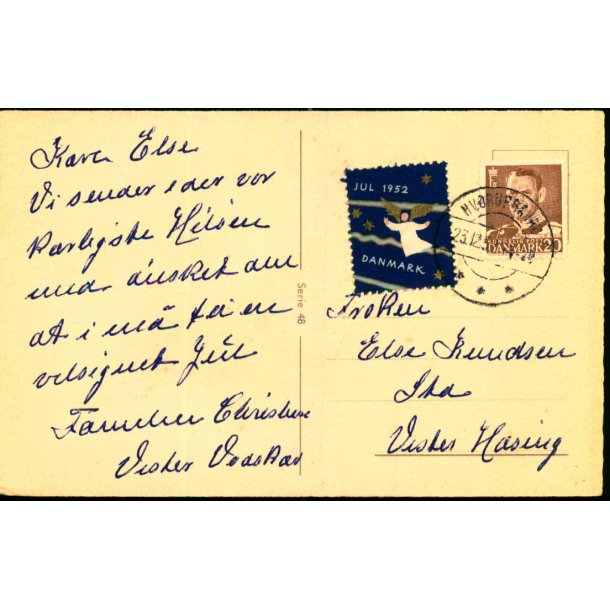 Kære Else
Vi sender eder vor
kærligste Hilsen
med ønsket om
at i må få en
velsignet Jul
Familien
Vester Vodskov
Serie 48
JUL 1952
DANMARK
HVORUPGAARD
23.12
DANMARK 20
Frøken
Else Knudsen
Vester Hasing